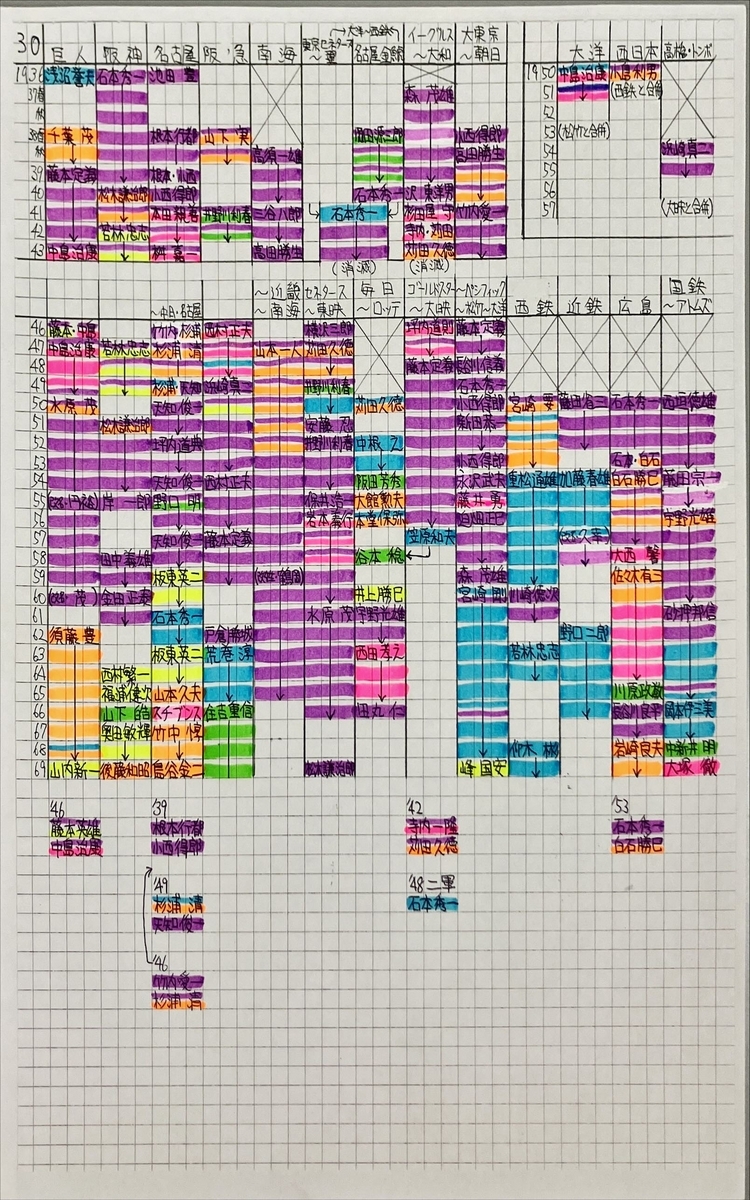 30 巨人 阪神 名古屋 阪急 南海 東京セネタース～翼 (→大洋～西鉄) 名古屋金鯱 イーグルス～大和 大東京～朝日 大洋 西日本 高橋・トンボ
1936 石本秀一 池田豊 1950 中島治康 小島利男
37春 森茂雄 51 (西鉄と合併)
秋 52
38春 千葉茂 根本行都 山下実 小西得郎 53 (松竹と合併)
秋 高須一雄 高田勝生 54 浜崎真二
39 藤本定義 根本・小西 55
40 松木謙治郎 小西得郎 石本秀一 56
41 本田親喜 井野川利春 三谷八郎 石本秀一 杉田屋守 竹内愛一 57 (大映と合併)
42 若林忠志 寺内・苅田
43 中島治康 桝嘉一 高田勝生 苅田久徳
(消滅) (消滅)
～中日・名古屋 ～近畿～南海 セネタース～東映 毎日～ロッテ ゴールドスター～大映 ～パシフィック～松竹～大洋 西鉄 近鉄 広島 国鉄～アトムズ
46 藤本・中島 竹内・杉浦 西村正夫 横沢三郎 坪内道則 藤本定義
47 中島治康 若林忠志 杉浦清 山本一人 苅田久徳
48 藤本定義 長谷川信義
49 杉浦・天知 浜崎真二 井野川利春 石本秀一
50 水原茂 天知俊一 苅田久徳 小西得郎 宮崎要 藤田省三 石本秀一 西垣徳雄
51 松木謙治郎 安藤忍 新田恭一
52 坪内道典 井野川利春 中根之
53 小西得郎 石本・白石
54 天知俊一 西村正夫 阪田芳秀 永沢武夫 重松通雄 加藤春雄 白石勝巳 藤田宗一
55 岸一郎 野口明 保井浩一 大館勲夫 藤井勇
56 岩本義行 本堂保弥 迫畑正巳 宇野光雄
57 天知俊一 藤本定義 笠原和夫
58 田中義雄 谷本稔 大西警
59 板東英二 (改姓・鶴岡) 森茂雄 佐々木有三
60 金田正泰 井上勝巳 宮崎剛 川崎徳次
61 石本秀一 水原茂 宇野光雄 砂押邦信
62 須藤豊 戸倉勝城 野口二郎
63 板東英二 荒巻淳 西田孝之 若林忠志
64 西村繁一
65 福浦健次 山本久夫 川原政数
66 山下皓 スチブンス 住吉重信 田丸仁 長谷川良平 岡本伊三美
67 奥田敏輝 竹中惇
68 仰木彬 岩崎良夫 中新井明
69 山内新一 後藤和昭 島谷金二 松木謙治郎 峰国安 大塚徹
'46 '39 '42 '53
藤本英雄 根本行都 寺内一隆 石本秀一
中島治康 小西得郎 苅田久徳 白石勝巳
'49 '48二軍
杉浦清 石本秀一
天知俊一
'46
竹内愛一
杉浦清